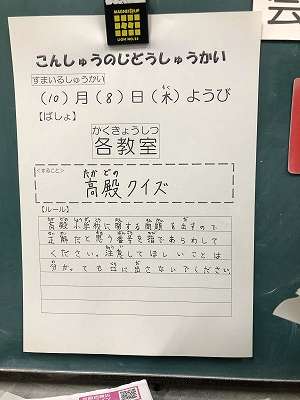 こんしゅうのじどうしゅうかい
すまいるしゅうかい
もく
(10)月(8)日(木)ようび
【ばしょ】
かくきょうしつ
各教室
<すること>
たかどの
高殿クイズ
【ルール】
高殿小学校に関する問題を出すので
正解だと思う番号を指であらわして
ください。注意してほしいことは
分かっても口に出さないでください。